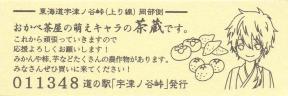 東海道宇津ノ谷峠(上り線)岡部側
おかべ茶屋の萌えキャラの茶蔵です。
これから頑張っていきますので
応援よろしくお願いします!
みかんや柿、芋などたくさんの農作物があります。
みなさんぜひ買いに来てください!
011348 道の駅「宇津ノ谷峠」発行